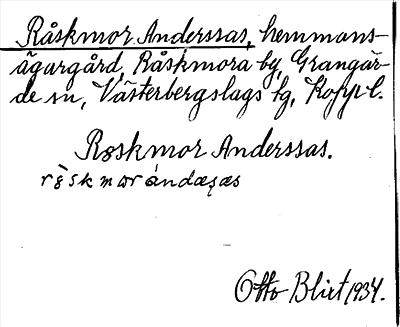 Råskmor Anderssas, hemmans-
ägargård, Råskmora by, Grangär-
de sn, Västerbergslags tg, Kopp l.
Rɷskmor Anderssas.
Otto Blixt 1934.